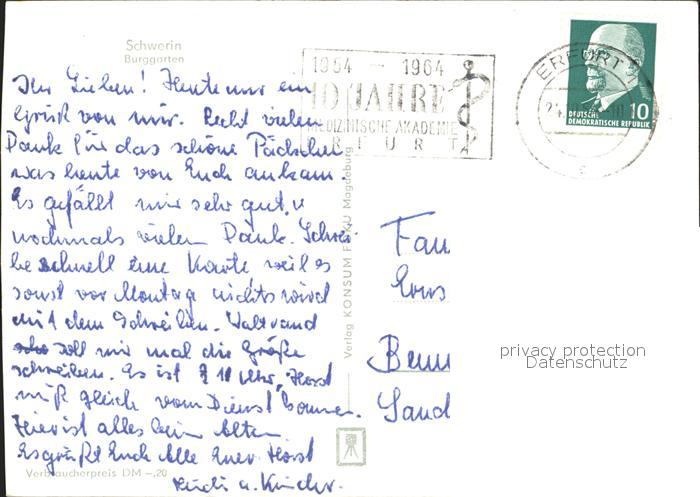 Schwerin
Burggarten
Ihr Lieben! Heute nur ein
Gruß von mir. Recht vielen
Dank für das schöne Päckchen
was heute von Euch ankam.
Es gefällt mir sehr gut, u
nochmals vielen Dank. Schrei-
be schnell eine Karte weil es
sonst vor Montag nichts wird
mit dem Schreiben. Waltraud
soll mir mal die Größe
schreiben. Es ist 11 Uhr, Horst
muß gleich vom Dienst kommen.
Hier ist alles beim Alten
Es grüßt Euch Alle Euer Horst
u. Kinder.
Verbraucherpreis DM -,20
Verlag KONSUM FOKU Magdeburg
1954 - 1964
10 JAHRE
MEDIZINISCHE AKADEMIE
ERFURT
ERFURT
DEUTSCHE
DEMOKRATISCHE REPUBLIK
10
Fam
Benn
Sand
privacy protection
Datenschutz